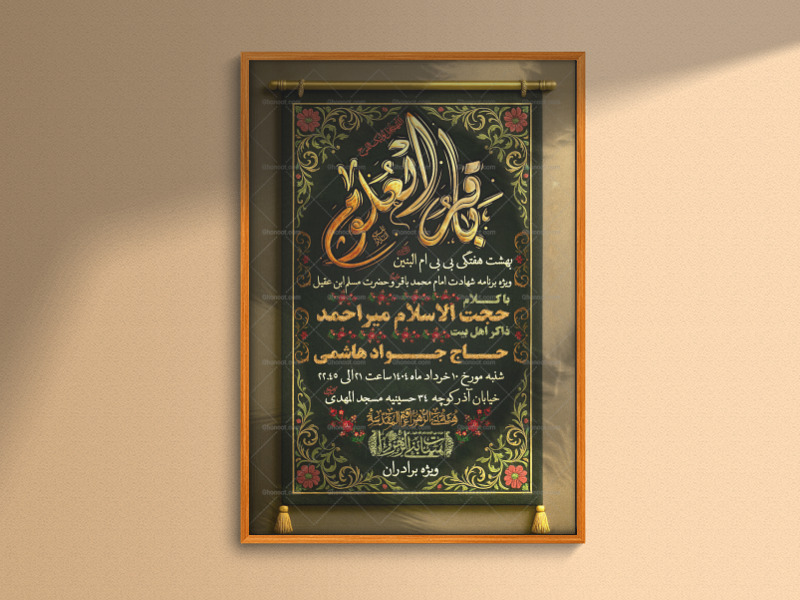 باقر العلوم
بهشت هفتگی بی بی ام البنین
ویژه برنامه شهادت امام محمد باقر و حضرت مسلم ابن عقیل
با کلام
حجت الاسلام میراحمد
ذاکر اهل بیت
حاج جواد هاشمی
شنبه مورخ ۱۰ خرداد ماه ۱۴۰۴ ساعت ۲۱ الی ۲۲:۴۵
خیابان آذر کوچه ۳۴ حسینیه مسجد المهدی
ویژه برادران